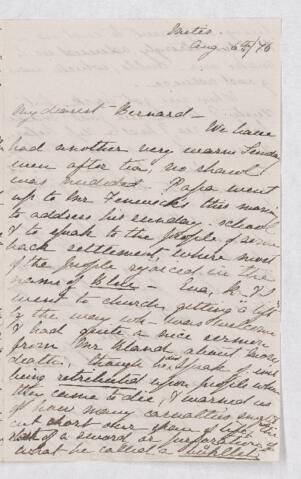 Metis
Aug. 6th/76
My dearest Bernard –
We have
had another very warm Sunday
even after tea, no shawl
was needed. Papa went
up to Mr this morning
to address his Sunday-school
& to speak to the people of some
back settlement, where most
of the people rejoiced in the
name of Blue – Eva, K. & I
went to church, getting a lift
by the way wh. was welcome
& had quite a nice sermon
from Mr Bland, about
death, though he speak of
being upon people when
they come to die, & warned us
of how many casualties might
cut short our span of life, the
of a sword or
what he called a